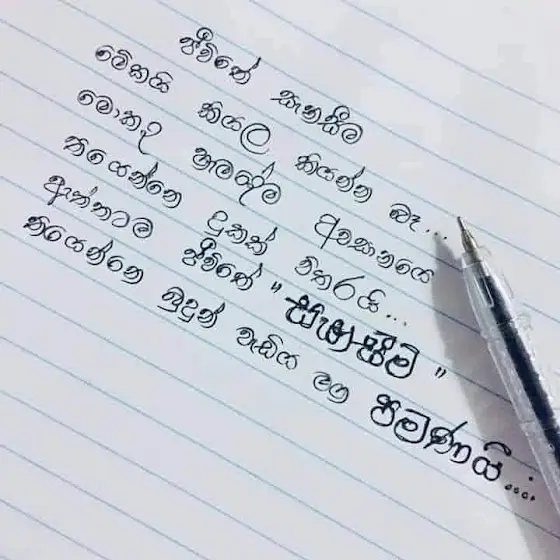 ජීවිතේ සැනසීම
මේකයි කියල කියන්න බෑ...
මොකද හුඟක්ම අවසානයෙ
තියෙන්නෙ දුකක් විතරයි...
ඇත්තටම ජීවිතේ " සැනසීම "
තියෙන්නෙ බුදුන් වැඩිය මග පමණයි....